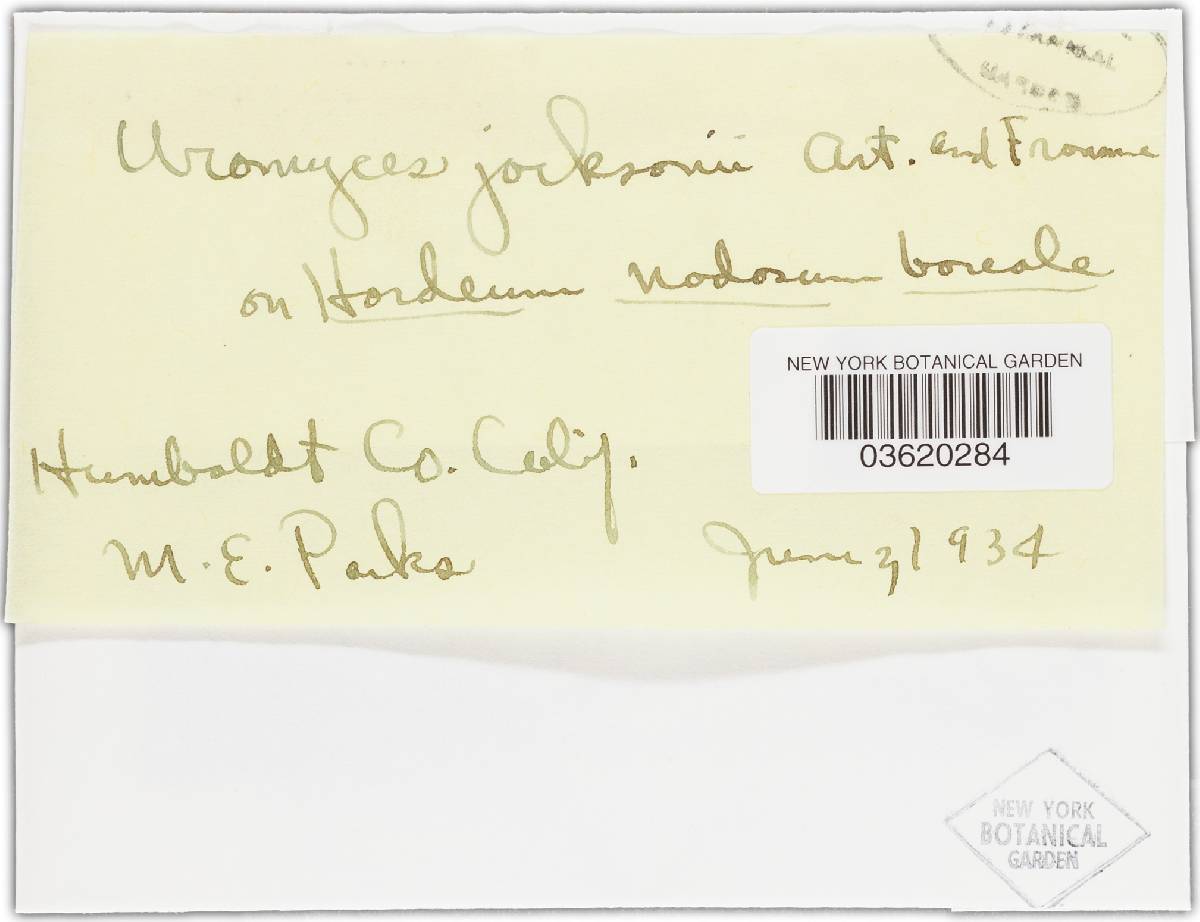 Uromyces jacksonii Art. and Fromme
on Hordeum nodosum boreale
NEW YORK BOTANICAL GARDEN
03620284
Humboldt Co. Calif.
M. E. Parks June 2, 1934
NEW YORK
BOTANICAL
GARDEN